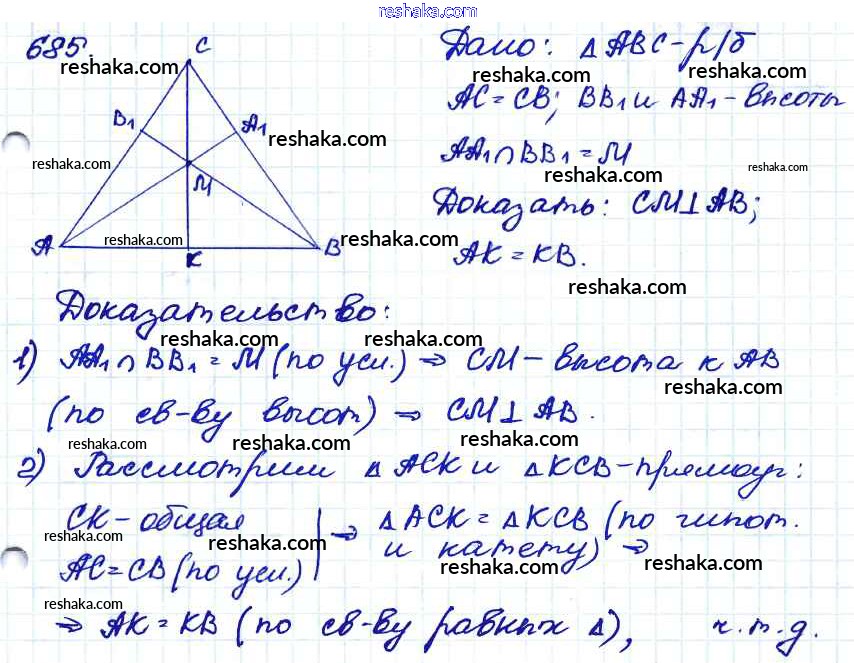 reshaka.com
685.
C
Дано: △ ABC - р/б
reshaka.com
reshaka.com
AC = CB; BB₁ и AA₁ - высоты
reshaka.com
B₁
A₁
reshaka.com
reshaka.com
AA₁ ∩ BB₁ = M
reshaka.com
M
Доказать: CM ⊥ AB;
reshaka.com
A
reshaka.com
B
reshaka.com
K
AK = KB.
reshaka.com
Доказательство:
reshaka.com
reshaka.com
1) AA₁ ∩ BB₁ = M (по усл.) ⇒ CM - высота к AB
reshaka.com
(по св-ву высот) ⇒ CM ⊥ AB.
reshaka.com
reshaka.com
reshaka.com
2) Рассмотрим △ ACK и △ KCB - прямоуг:
reshaka.com
reshaka.com
CK - общая
⇒ △ ACK = △ KCB (по гипот.
reshaka.com
reshaka.com
reshaka.com
и катету) ⇒
AC = CB (по усл.)
reshaka.com
reshaka.com
reshaka.com
reshaka.com
reshaka.com
⇒ AK = KB (по св-ву равных △), ч.т.д.
reshaka.com
reshaka.com
reshaka.com